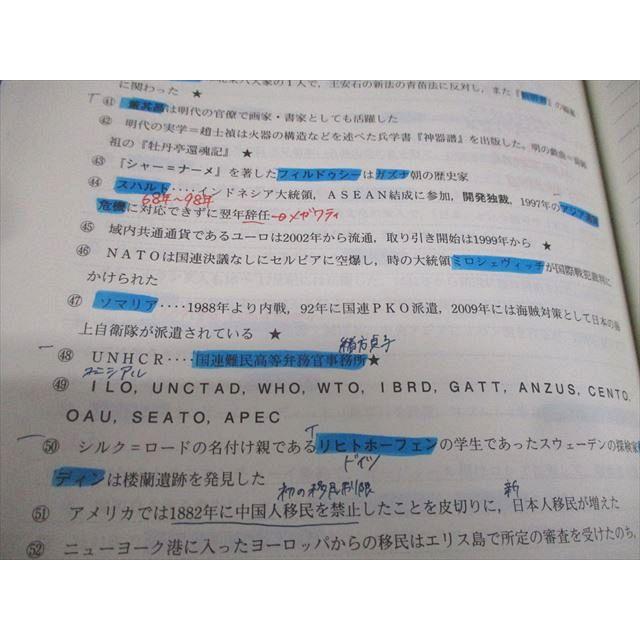 に関わった ★
㊶ 董其昌は明代の官僚で画家・書家としても活躍した
㊷ 明代の実学=趙士禎は火器の構造などを述べた兵学書『神器譜』を出版した。明の戯曲=湯顕
祖の『牡丹亭還魂記』 ★
㊸ 『シャー=ナーメ』を著したフィルドゥシーはガズナ朝の歴史家
㊹ スハルト‥‥インドネシア大統領, ASEAN結成に参加, 開発独裁, 1997年のアジア通貨
68年〜98年
危機に対応できずに翌年辞任→メガワティ
㊺ 域内共通通貨であるユーロは2002年から流通, 取り引き開始は1999年から ★
㊻ NATOは国連決議なしにセルビアに空爆し, 時の大統領ミロシェヴィッチが国際戦犯裁判に
かけられた
㊼ ソマリア‥‥1988年より内戦, 92年に国連PKO派遣, 2009年には海賊対策として日本の海
上自衛隊が派遣されている ★
緒方貞子
㊽ UNHCR‥‥国連難民高等弁務官事務所★
㊾ ILO, UNCTAD, WHO, WTO, IBRD, GATT, ANZUS, CENTO,
OAU, SEATO, APEC
㊿ シルク=ロードの名付け親であるリヒトホーフェンの学生であったスウェーデンの探検家
ドイツ
ディンは楼蘭遺跡を発見した
初の移民制限 新
51 アメリカでは1882年に中国人移民を禁止したことを皮切りに, 日本人移民が増えた
52 ニューヨーク港に入ったヨーロッパからの移民はエリス島で所定の審査を受けたのち,